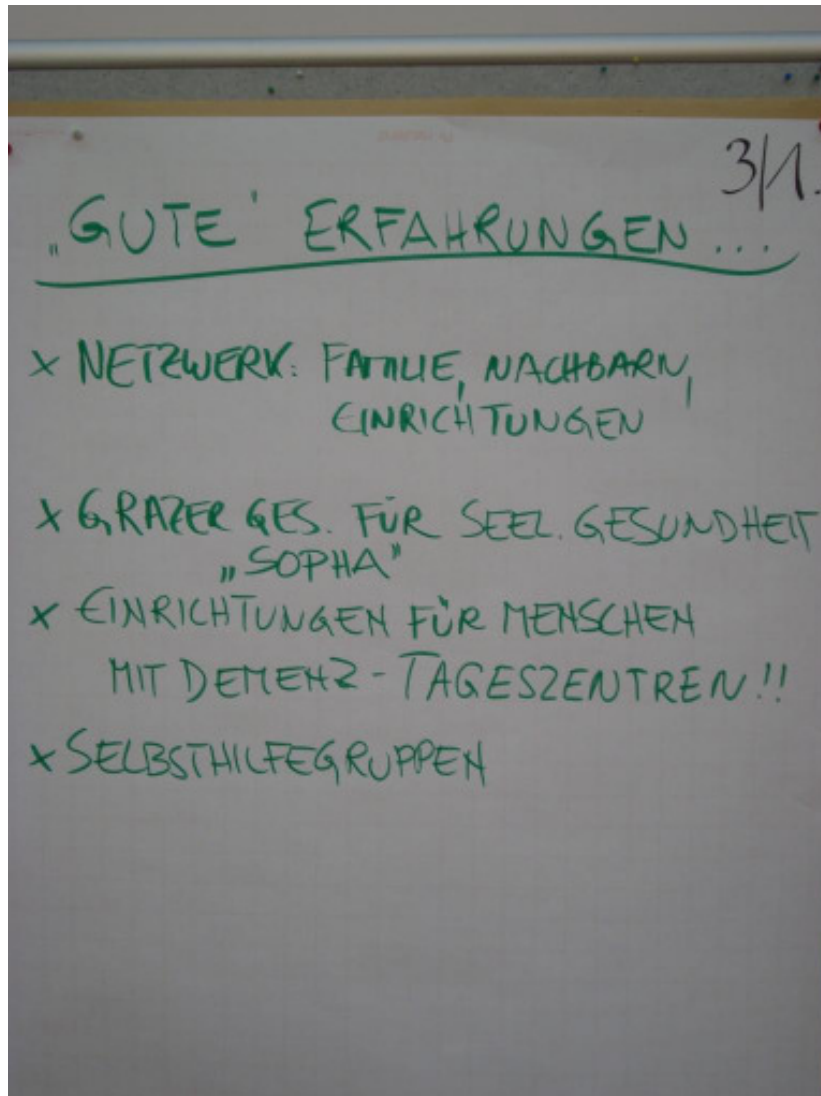 3/1.
„GUTE' ERFAHRUNGEN ...
x NETZWERK: FAMILIE, NACHBARN,
EINRICHTUNGEN
x GRAZER GES. FÜR SEEL. GESUNDHEIT
„SOPHA"
x EINRICHTUNGEN FÜR MENSCHEN
MIT DEMENZ - TAGESZENTREN!!
x SELBSTHILFEGRUPPEN